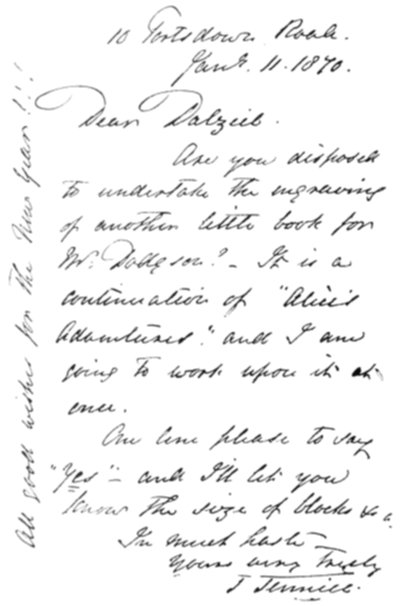 10 Portsdown Road.
Jany. 11. 1870.
Dear Dalziel.
Are you disposed
to undertake the engraving
of another little book for
Mr. Dodgson? – It is a
continuation of "Alice's
Adventures". and I am
going to work upon it at
once.
One line please to say
"Yes" – and I'll let you
know the size of blocks &c.
In much haste –
Yours very truly
J Tenniel.
All good wishes for the New Year!!!